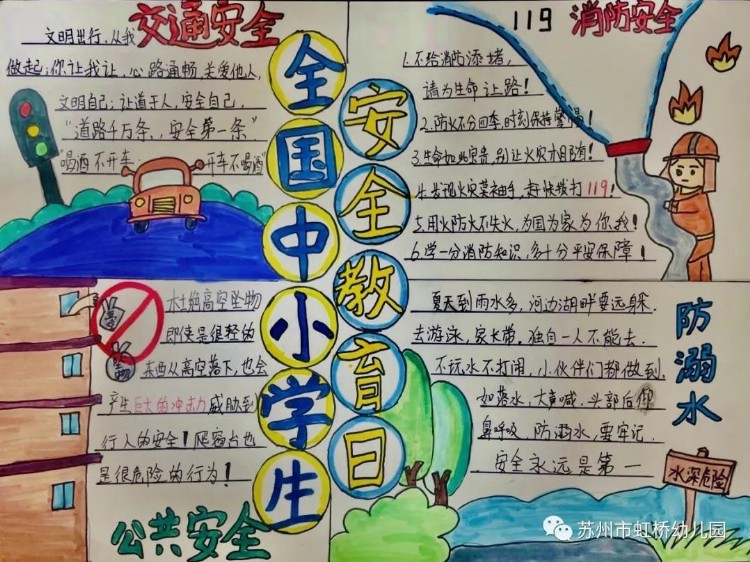 交通安全
文明出行，从我
做起；你让我让，心路通畅，关爱他人，
文明自己；让道于人，安全自己，
“道路千万条，安全第一条”
“喝酒不开车 开车不喝酒”
全国中小学生
安全教育日
119 消防安全
1.不给消防添堵，
请为生命让路！
2.防火不分四季，时刻保持警惕！
3.生命如此宝贵，别让火灾水目有！
4.发现火灾莫袖手，赶快拨打119！
5.用火防火不失火，为国为家为你我！
6.学一分消防知识，多十分平安保障！
杜绝高空坠物
即使是很轻的
东西从高空落下，也会
产生巨大的冲击力威胁到
行人的安全！爬窗台也
是很危险的行为！
公共安全
防溺水
夏天到雨水多，河边湖畔要远躲．
去游泳，家长带，独自一人不能去．
不玩水不打闹，小伙伴们都做到，
如落水，大声喊，头部后仰
鼻呼吸，防溺水，要牢记．
安全永远是第一
水深危险
苏州市虹桥幼儿园